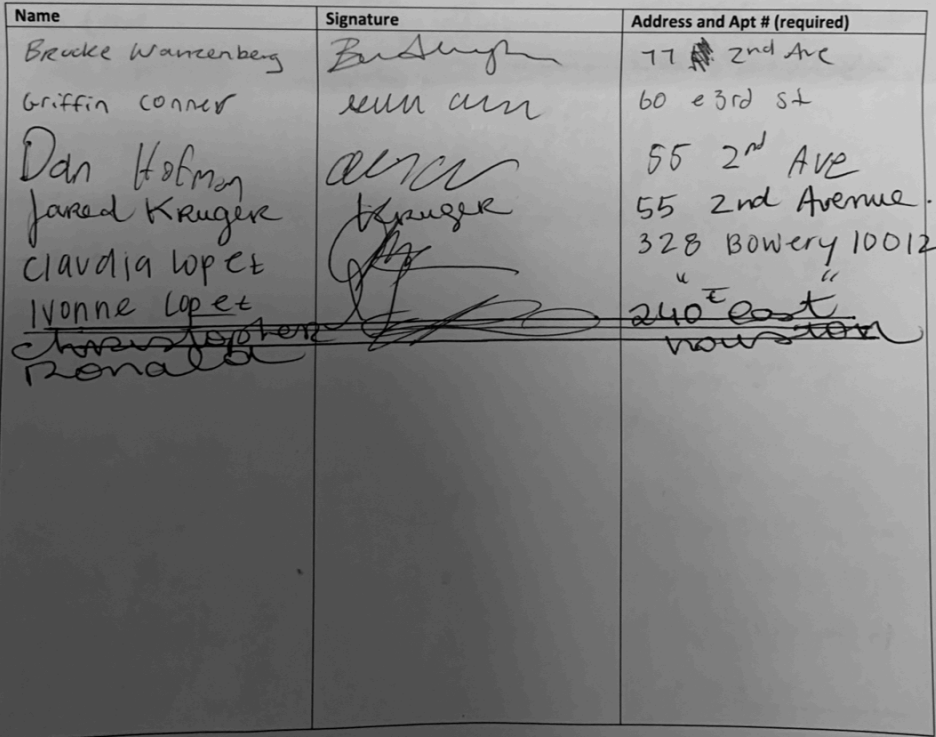 Name Signature Address and Apt # (required)
Brucke Wanzenberg 77 2nd Ave
Griffin Conner 60 e 3rd st
Dan Hofman 55 2nd Ave
Jared Kruger Kruger 55 2nd Avenue.
Claudia Lopez 328 Bowery 10012
Ivonne Lopez " "
Christopher 240 E east
Ronald houston